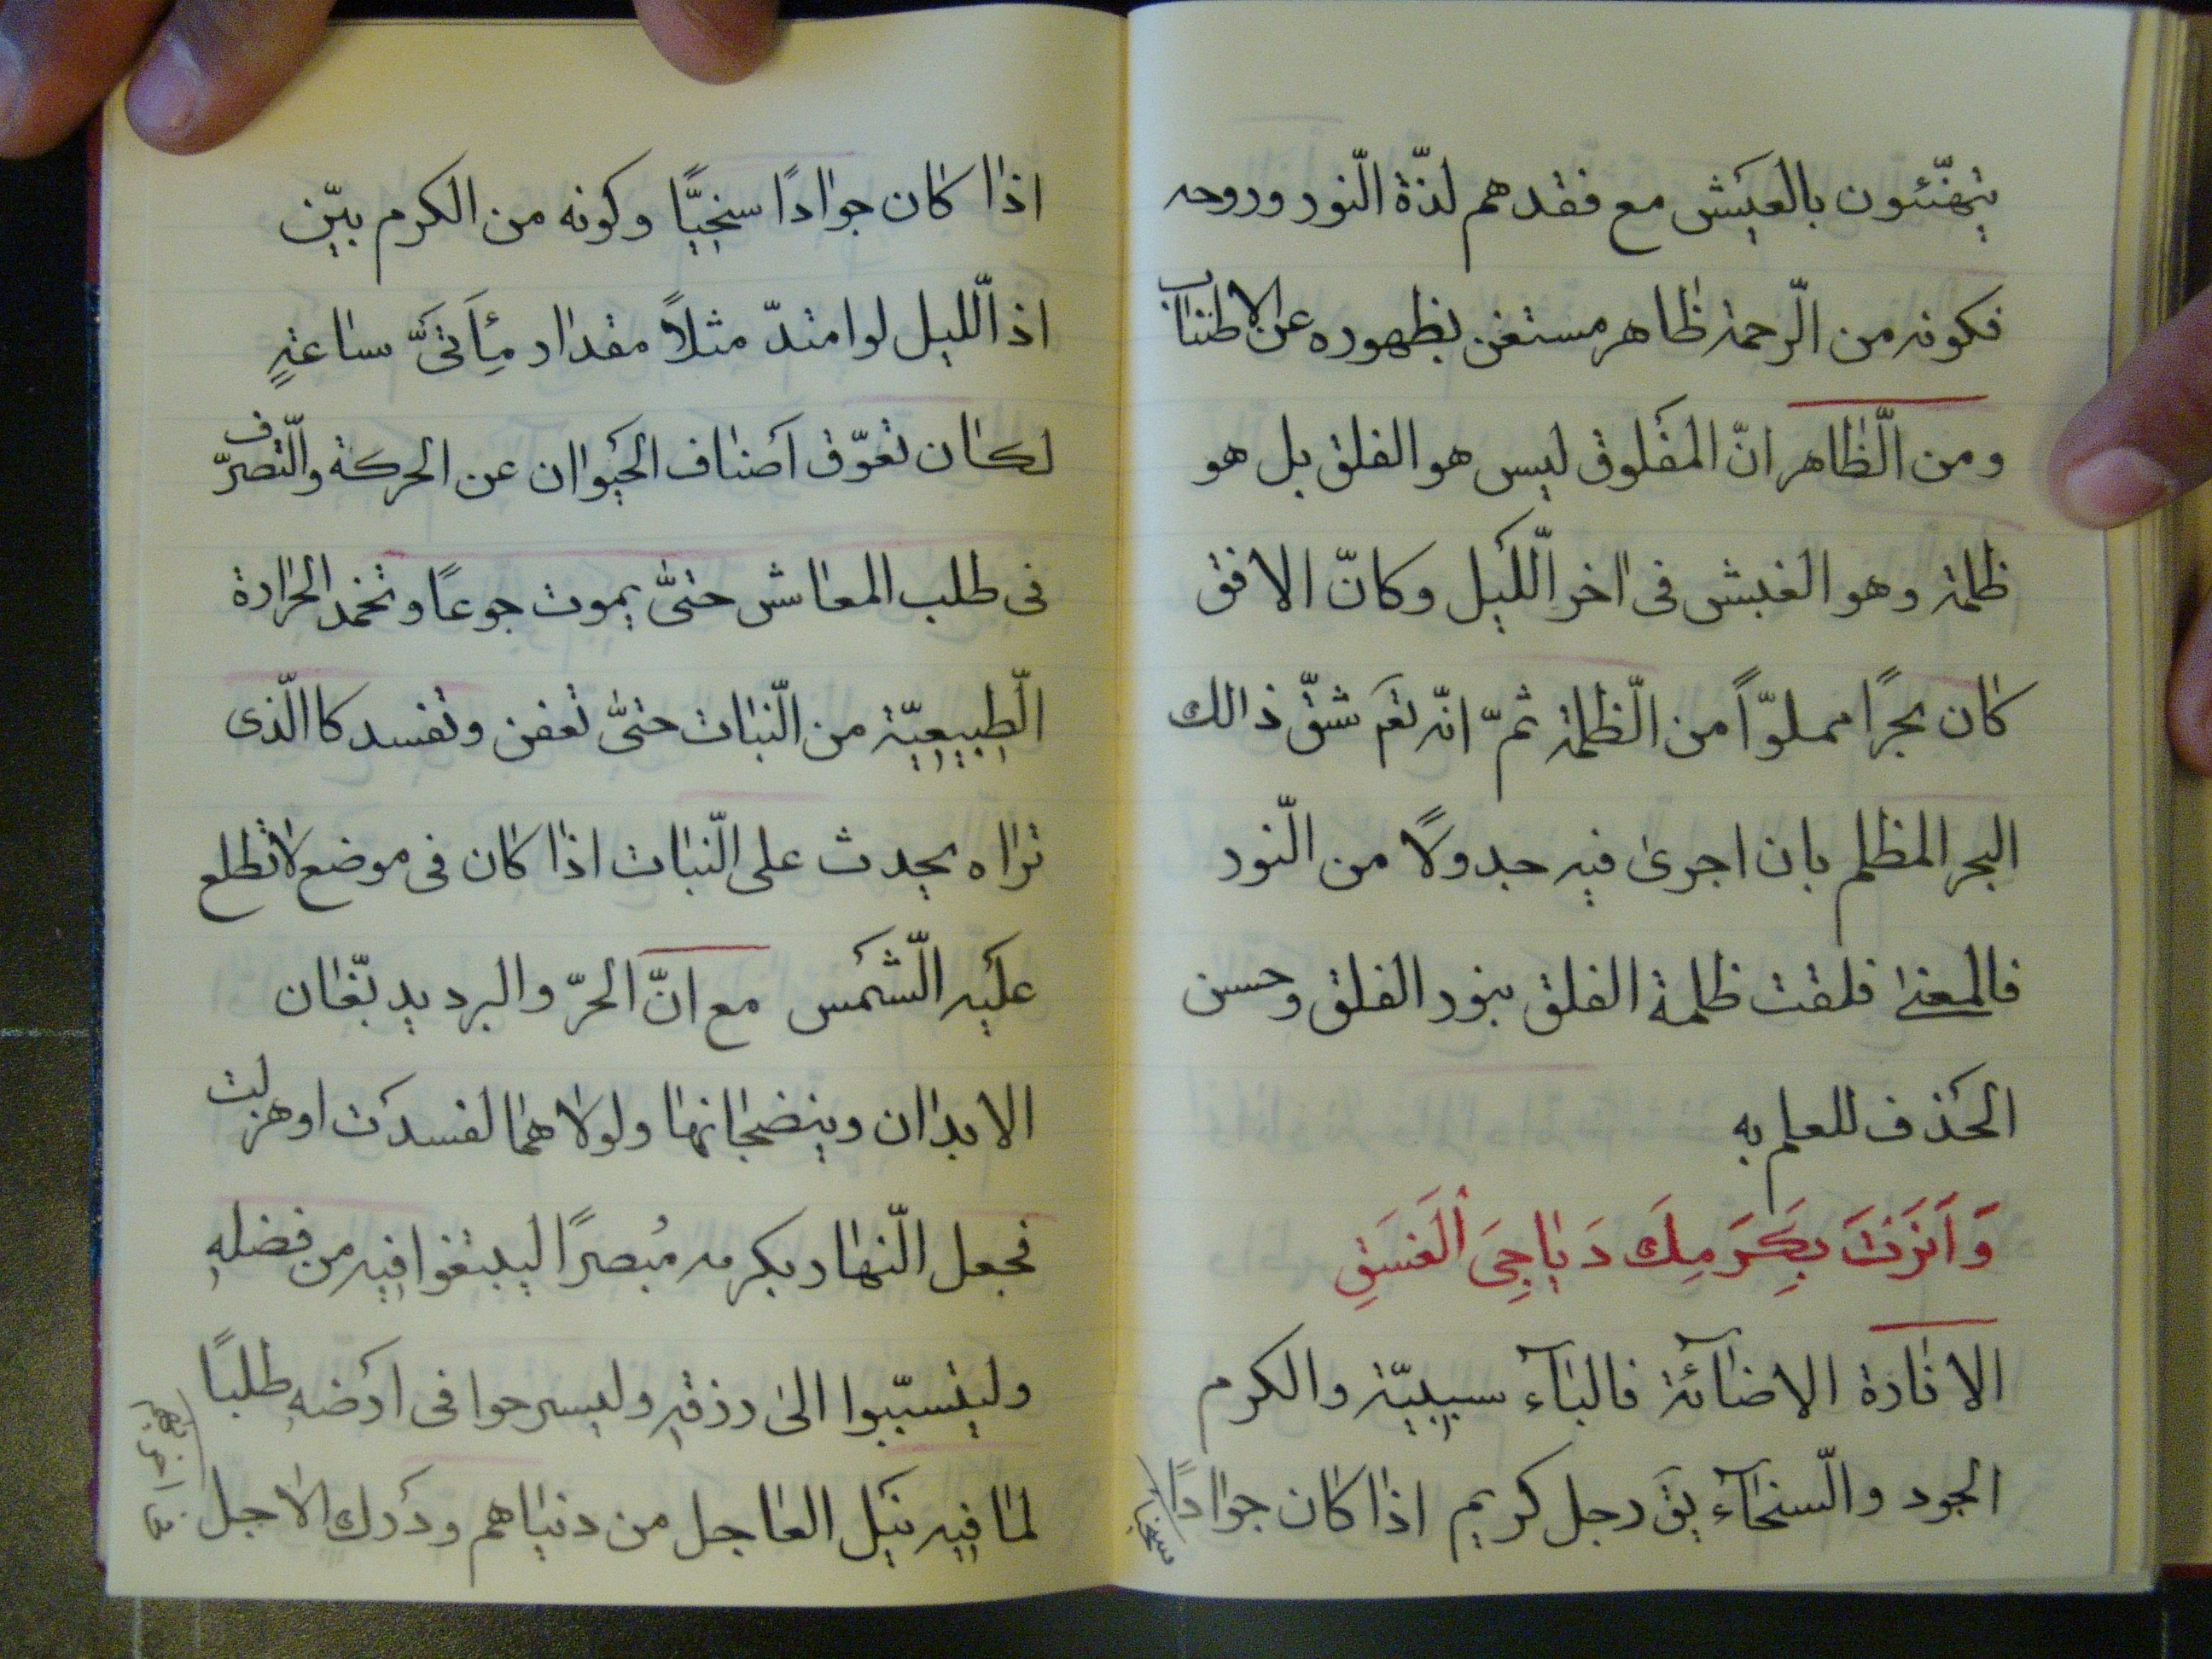 يتهنّئون بالعيش مع فقدهم لذّة النّور وروحه
فكونه من الرّحمة ظاهر مستغن بظهوره عن الاطناب
ومن الظّاهر انّ المفلوق ليس هو الفلق بل هو
ظلمة وهو الغبش فى اخر اللّيل وكانّ الافق
كان بحرًا مملوّاً من الظّلمة ثمّ انّه تعَ شقّ ذالك
البحر المظلم بان اجرى فيه جدولًا من النّور
فالمعنى فلقت ظلمة الفلق بنور الفلق وحسن
الحَذف للعلم به
وَاَنَرْتَ بِكَرَمِكَ دَيٰاجِىَ الْغَسَقِ
الانارة الاضآئة فالبآء سببيّة والكرم
الجود والسّخآء يقَ رجل كريم اذا كان جوادًا
سخيا
اذا كان جوادًا سخيًّا وكونه من الكرم بيّن
اذ اللّيل لو امتدّ مثلاً مقدار مِأَتَىْ ساعةٍ
لكان تعوّق اَصناف الحيَوان عن الحركة والتّصرّف
فى طلب المعاش حتّى يموت جوعًا وتخمد الحرارة
الطّبيعيّة من النّبات حتّى تعفن وتفسد كاالّذى
تراه يحدث على النّبات اذا كان فى موضع لاتطلع
عليَه الشّمَس مع انّ الحرّ والبرد يدبّغان
الابدان وينضجانها ولولاهما لفسدَت اوهزلت
فجعل النّهار بكرمه مُبصرًا ليبتغوا فيه من فضلهِ
وليتسبّبوا الى رزقهِ وليسرحوا فى ارَضه طلبًا
لما فيه نيَل العاجل من دنياهم ودَرك الاجل